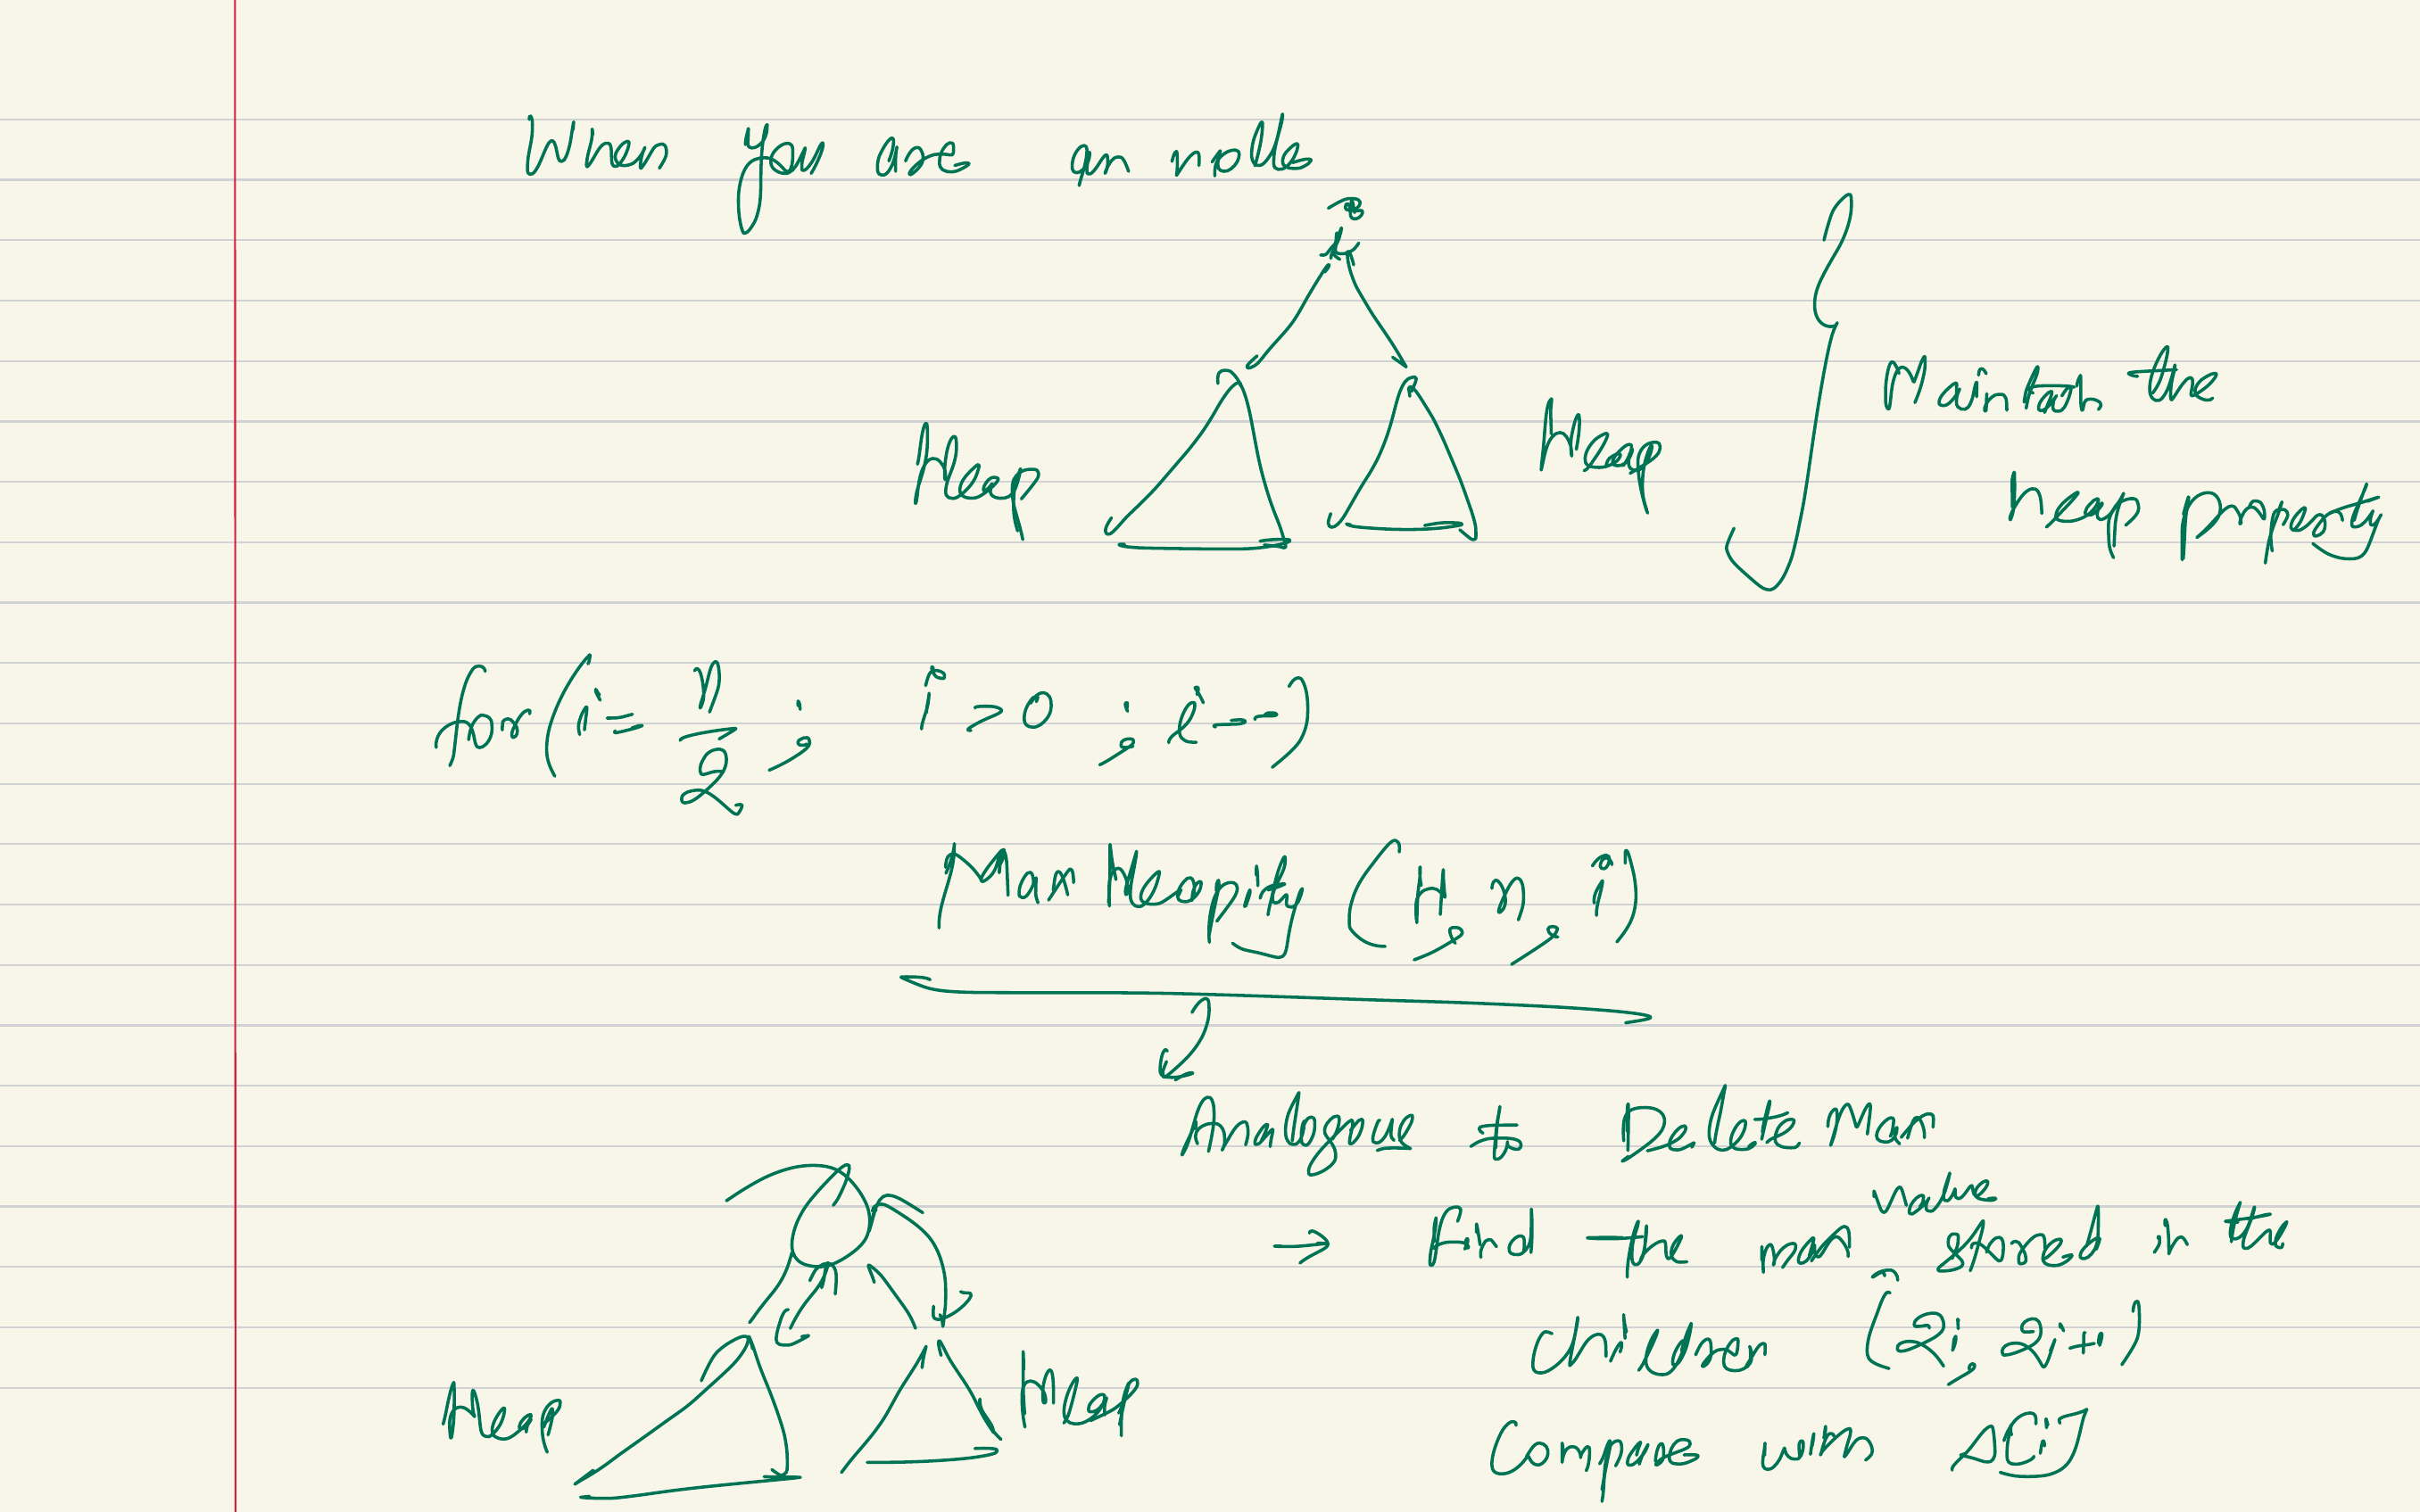 When you are on node
i
Heap
Heap
Maintain the
heap property
for(i= n/2 ; i>0 ; i--)
Max Heapify (H, n, i)
Analogous to Delete Max
→ Find the max value stored in the
children (2i, 2i+1)
Heap
Heap
Compare with A[i]